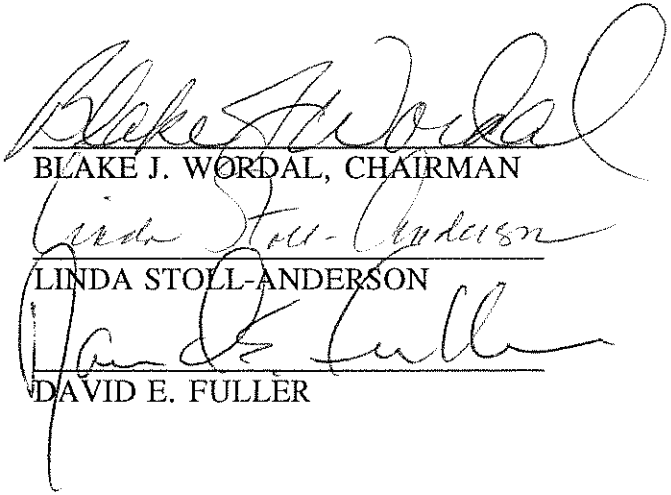 Blake J Wordal
BLAKE J. WORDAL, CHAIRMAN
Linda Stoll-Anderson
LINDA STOLL-ANDERSON
David E. Fuller
DAVID E. FULLER